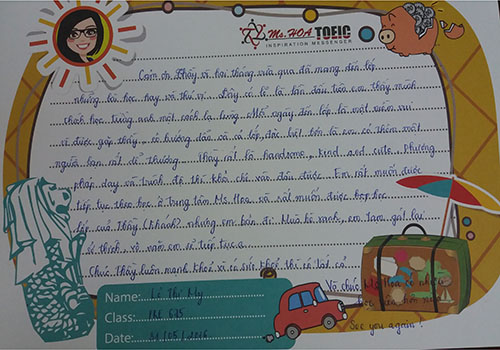 Ms. HOA TOEIC
INSPIRATION MESSENGER
Cảm ơn Thầy vì hai tháng vừa qua đã mang đến lớp
những bài học hay và thú vị. Đây có lẽ là lần đầu tiên em thấy mình
học tiếng anh một cách lạ lùng. Mỗi ngày đến lớp là một niềm vui
vì được gặp thầy, cô hướng dẫn và cả lớp, đặc biệt hơn là em có thêm một
người bạn rất dễ thương. Thầy rất là handsome, kind and cute. Phương
pháp dạy và trình độ thì khỏi chê vào đâu được. Em rất muốn được
tiếp tục theo học ở trung tâm Ms Hoa và rất muốn được học
lớp của Thầy (Khánh) nhưng em bận đi Mùa hè xanh, em tạm gác lại
ý định và năm sau sẽ tiếp tục
Chúc Thầy luôn mạnh khoẻ vì có sức khoẻ thì có tất cả.
Và chúc Ms Hoa có nhiều
học viên hơn nữa
See you again!
Name: Lê Thị My
Class: PRE
Date: 31/05/2016